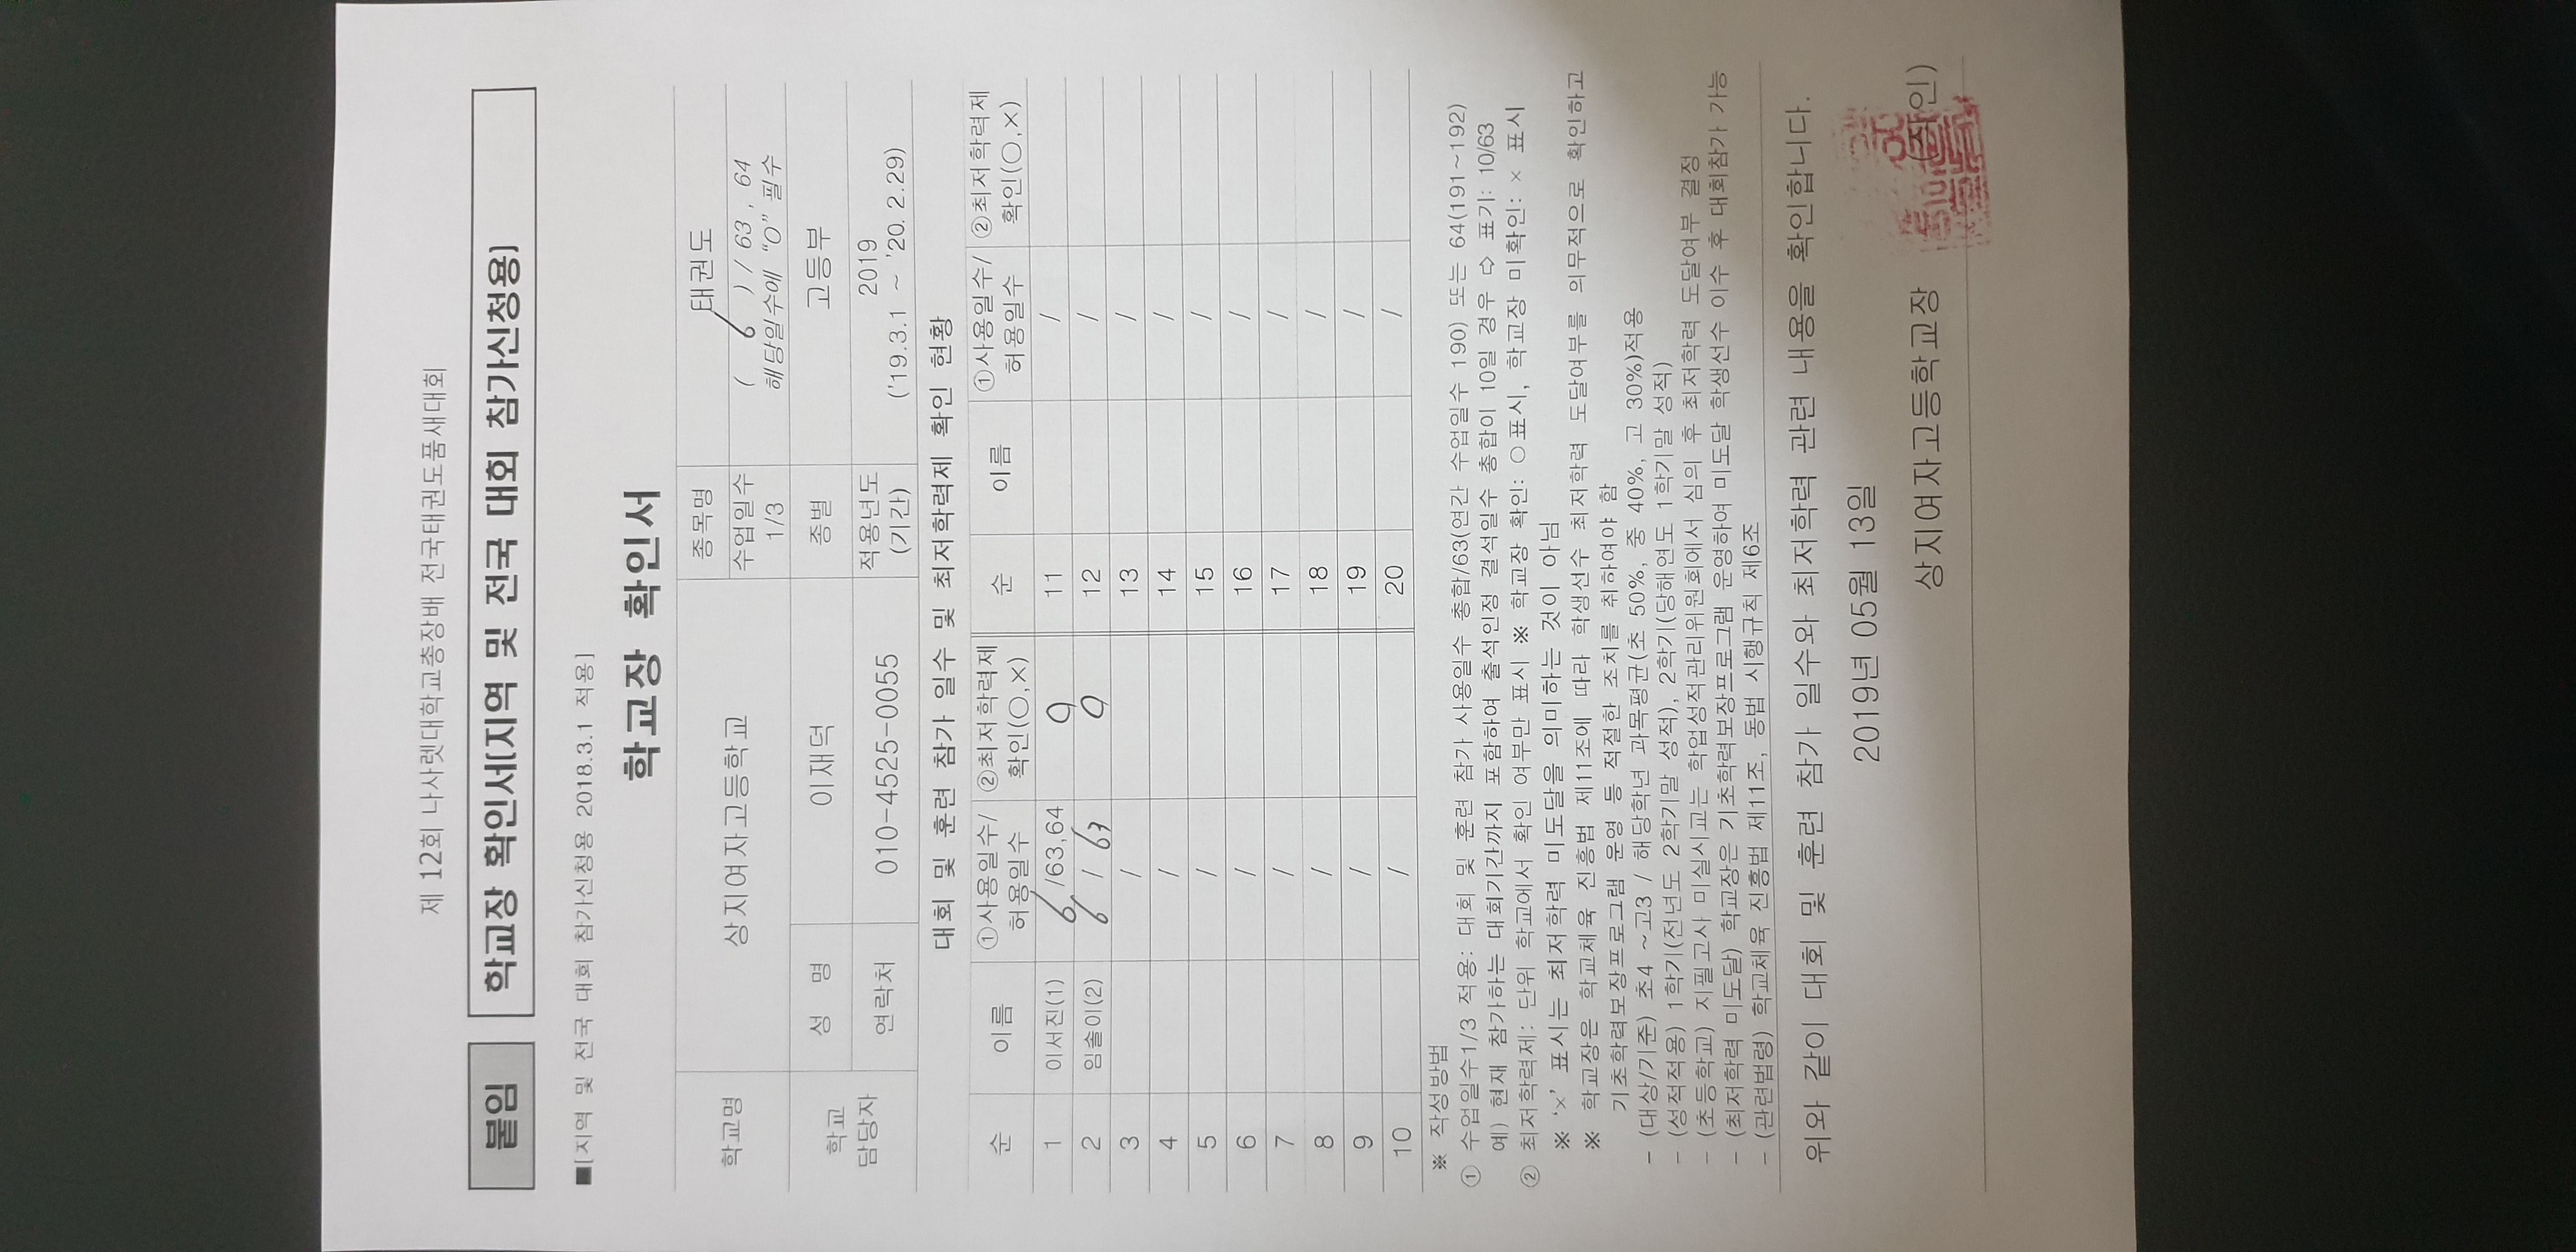 제 12회 나사렛대학교총장배 전국태권도품새대회
붙임 학교장 확인서(지역 및 전국 대회 참가신청용)
■[지역 및 전국 대회 참가신청용 2018.3.1 적용]
학교장 확인서
학교명 상지여자고등학교 종목명 태권도
수업일수 1/3 ( 6 ) / 63 , 64
해당일수에 "O" 필수
학교 담당자 성 명 이재덕 종별 고등부
연락처 010-4525-0055 적용년도 (기간) 2019
('19.3.1 ~ '20. 2.29)
대회 및 훈련 참가 일수 및 최저학력제 확인 현황
순 이름 ①사용일수/허용일수 ②최저학력제 확인(○,×) 순 이름 ①사용일수/허용일수 ②최저학력제 확인(○,×)
1 이서진(1) 6 /63,64 O 11 /
2 임솔이(2) 6 / 63 O 12 /
3 / 13 /
4 / 14 /
5 / 15 /
6 / 16 /
7 / 17 /
8 / 18 /
9 / 19 /
10 / 20 /
※ 작성방법
① 수업일수1/3 적용: 대회 및 훈련 참가 사용일수 총합/63(연간 수업일수 190) 또는 64(191~192)
예) 현재 참가하는 대회기간까지 포함하여 출석인정 결석일수 총합이 10일 경우 ⇨ 표기: 10/63
② 최저학력제: 단위 학교에서 확인 여부만 표시 ※ 학교장 확인: ○표시, 학교장 미확인: × 표시
※ '×' 표시는 최저학력 미도달을 의미하는 것이 아님
※ 학교장은 학교체육 진흥법 제11조에 따라 학생선수 최저학력 도달여부를 의무적으로 확인하고
기초학력보장프로그램 운영 등 적절한 조치를 취하여야 함
- (대상/기준) 초4 ~고3 / 해당학년 과목평균(초 50%, 중 40%, 고 30%)적용
- (성적적용) 1학기(전년도 2학기말 성적), 2학기(당해연도 1학기말 성적)
- (초등학교) 지필고사 미실시교는 학업성적관리위원회에서 심의 후 최저학력 도달여부 결정
- (최저학력 미도달) 학교장은 기초학력보장프로그램 운영하여 미도달 학생선수 이수 후 대회참가 가능
- (관련법령) 학교체육 진흥법 제11조, 동법 시행규칙 제6조
위와 같이 대회 및 훈련 참가 일수와 최저학력 관련 내용을 확인합니다.
2019년 05월 13일
상지여자고등학교장 (직인)